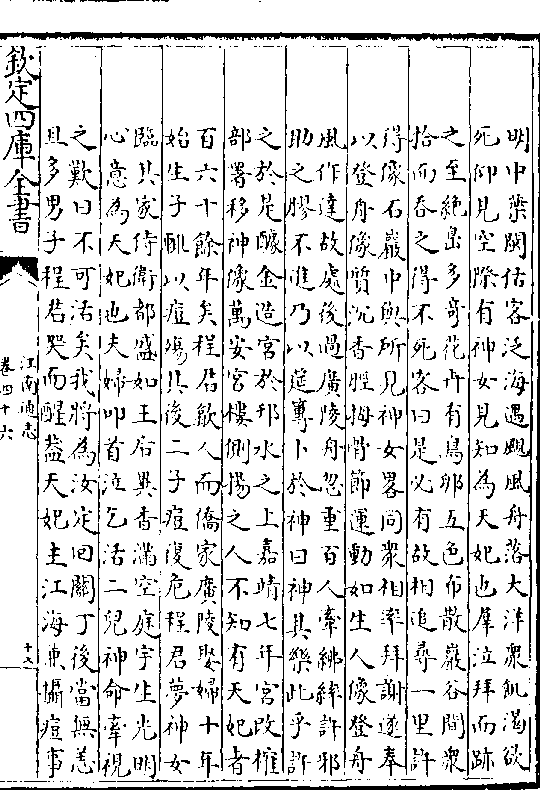 明中葉閩估客泛海遇颶風舟落大洋衆飢渴欲
死仰見空際有神女見知為天妃也羣泣拜而跡
之至絶島多奇花卉有鳥卵五色布散巖谷間衆
拾而吞之得不死客曰是必有故相追尋一里許
得像石巖中與所見神女畧同衆相率拜謝遂奉
以登舟像質沉香脛拇骨節運動如生人像登舟
風作達故處後過廣陵舟忽重百人牽紼繂許邪
助之膠不進乃以筵篿卜於神曰神其樂此乎許
之於是醵金造宫於邗水之上嘉靖七年宫改榷
部署移神像萬安宫樓側揚之人不知有天妃者
百六十餘年矣程君歙人而僑家廣陵娶婦十年
始生子輒以痘殤其後二子痘復危程君夢神女
臨其家侍衛都盛如王后異香滿空庭宇生光明
心意為天妃也夫婦叩首泣乞活二兒神命牽視
之歎曰不可活矣我將為汝定回關丁後當無恙
且多男子程君哭而醒葢天妃主江海兼攝痘事
欽定四庫全書
江南通志
卷四十六
十八